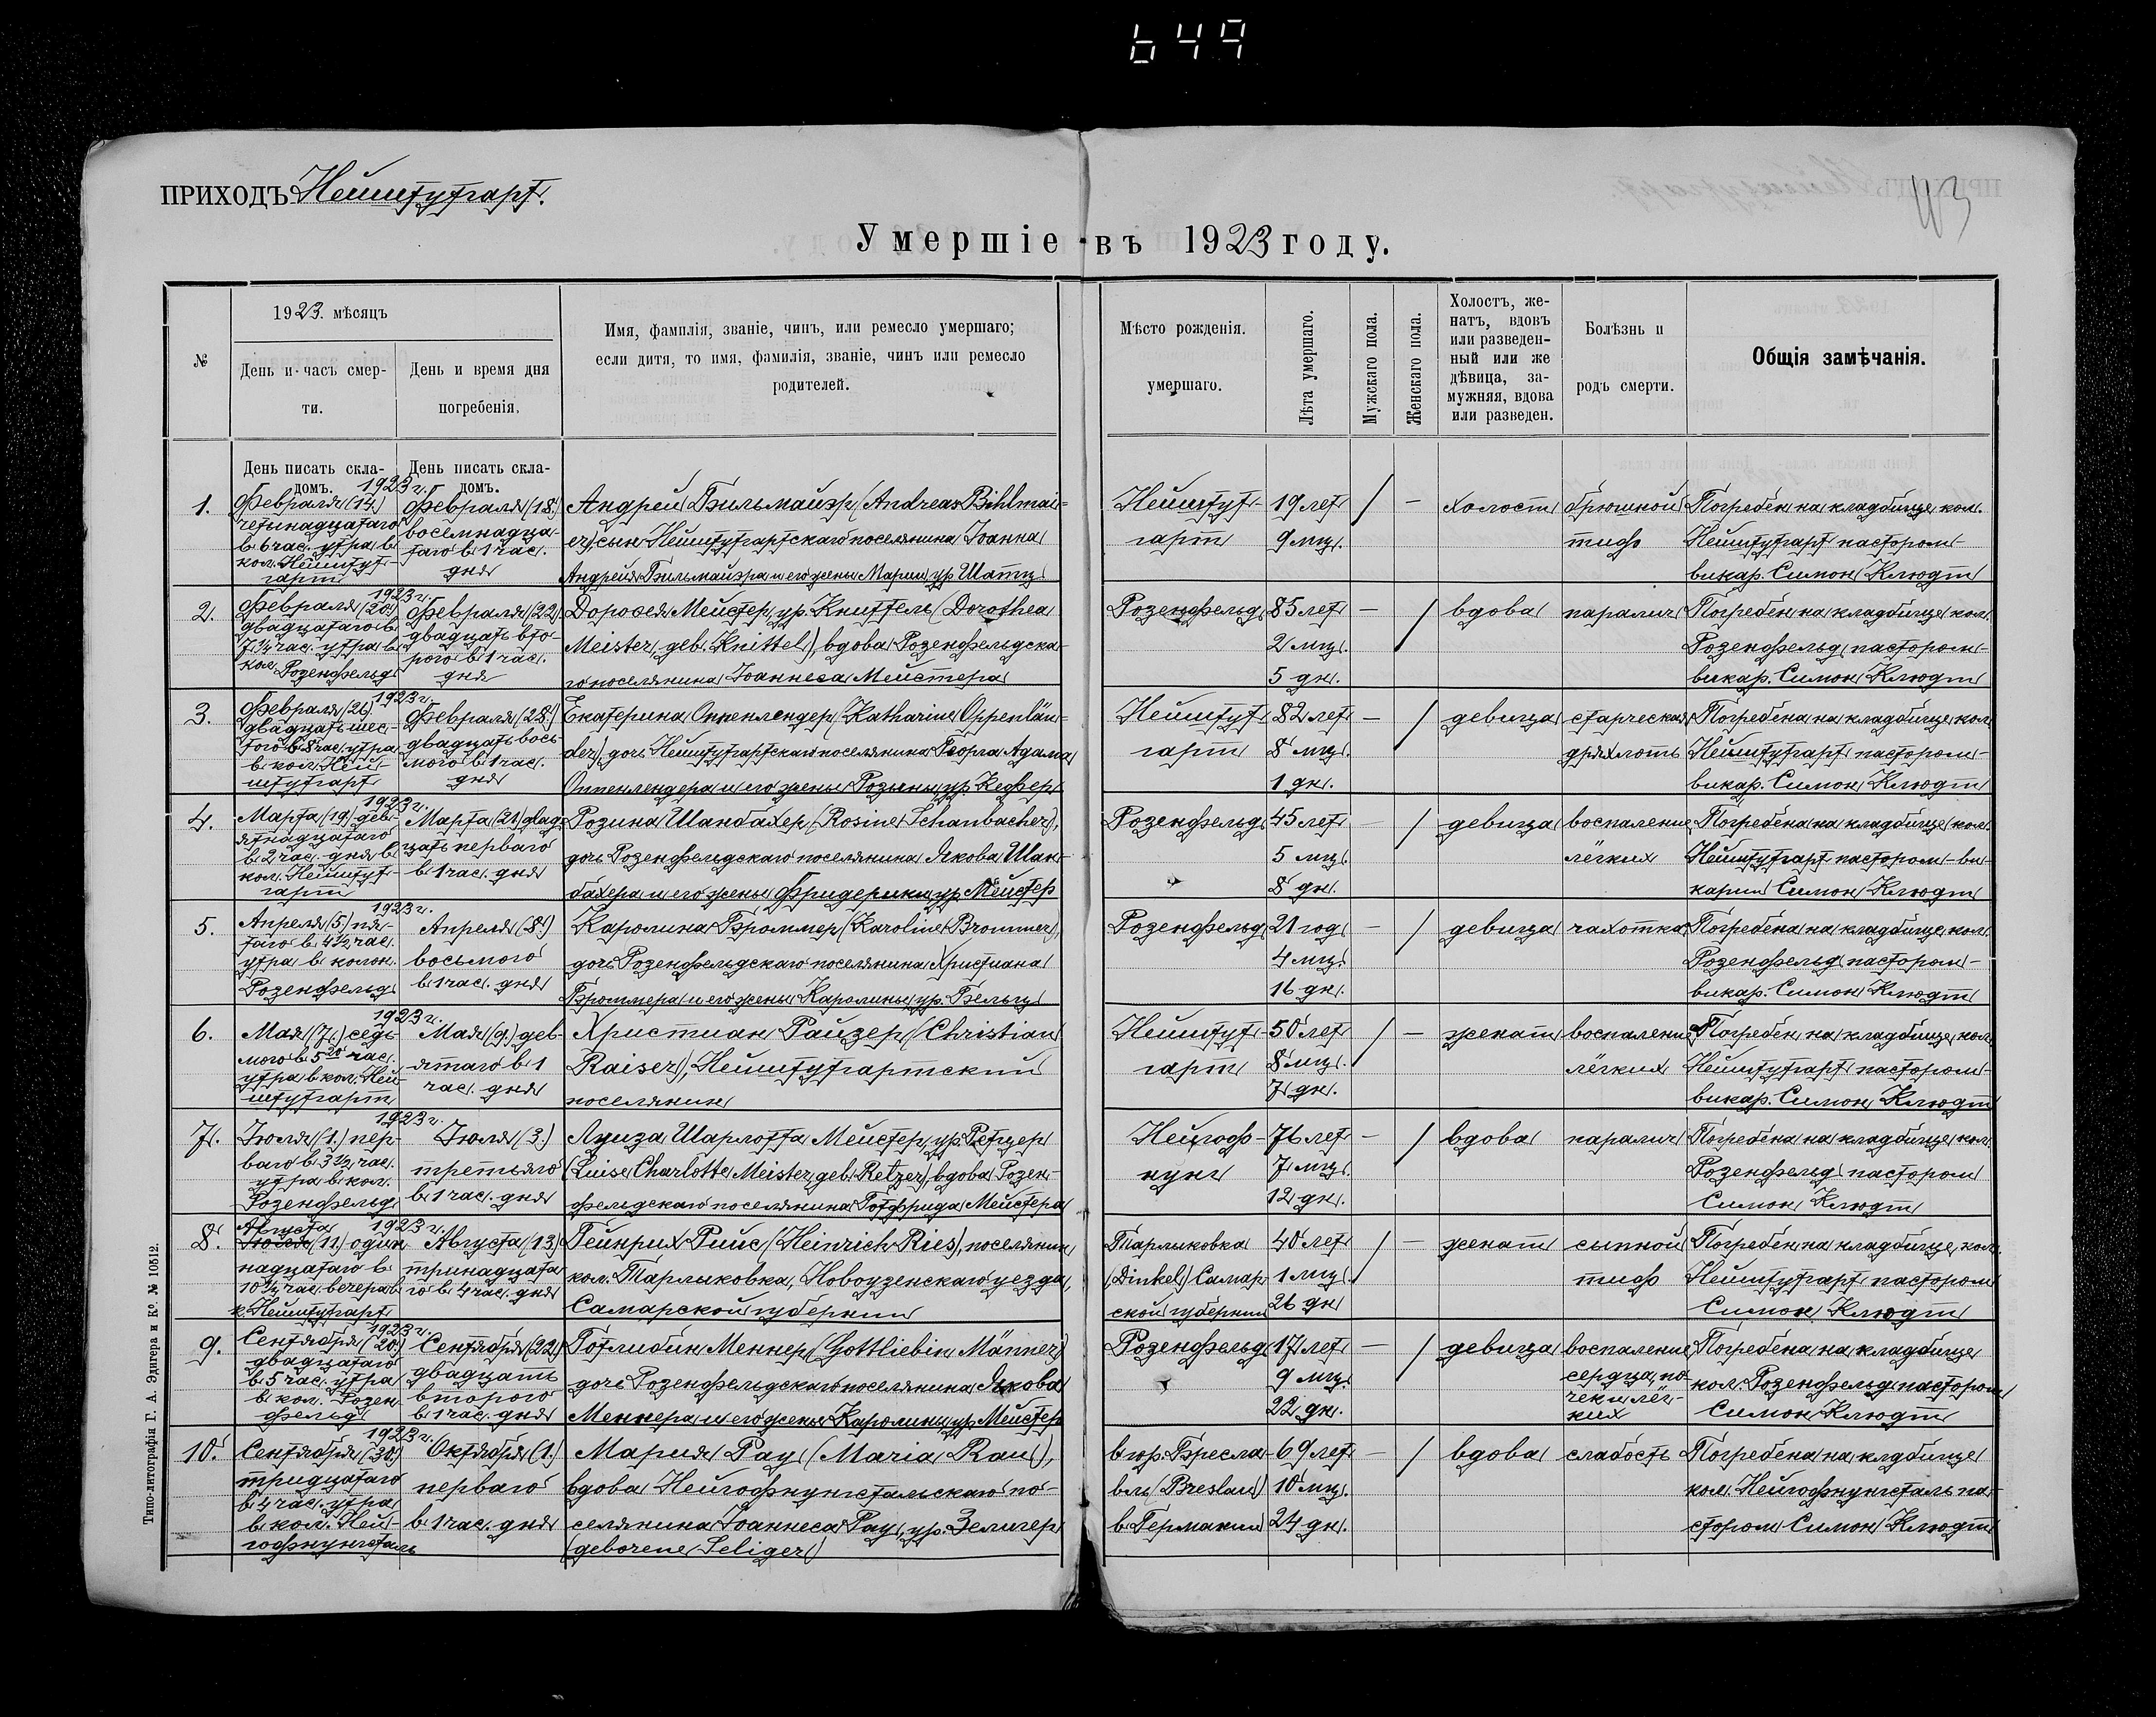 649
ПРИХОДЪ Нейштутгарт.
43
Умершіе въ 1923 году.
№
1923. мѣсяцъ
День и часъ смер-
ти.
День и время дня
погребенія.
Имя, фамилія, званіе, чинъ, или ремесло умершаго;
если дитя, то имя, фамилія, званіе, чинъ или ремесло
родителей.
Мѣсто рожденія.
умершаго.
Лѣта умершаго.
Мужскаго пола.
Женскаго пола.
Холостъ, же-
натъ, вдовъ
или разведен-
ный или же
дѣвица, за-
мужняя, вдова
или разведен.
Болѣзнь и
родъ смерти.
Общія замѣчанія.
День писать скла-
домъ.
День писать скла-
домъ.
1.
1923 г.
Февраля (14)
четынадцатаго
в 6 час. утра в
кол. Нейштут-
гарт
Февраля (18.)
восемнадца-
таго в 1 час.
дня
Андрей Бильмайэр (Andreas Bihlmai-
er), сын Нейштутгартскаго поселянина Іоанна
Андрея Бильмайэра и его жены Марии ур. Шатц
Нейштут-
гарт
19 лет
9 мц.
/
—
холост
брюшной
тиф
Погребен на кладбище кол.
Нейштутгарт пастором-
викар. Симон Клюдт
2.
1923 г.
Февраля (20.)
двадцатаго в
7 ½ час. утра в
кол. Розенфельд
Февраля (22)
двадцать вто-
рого в 1 час.
дня
Доротея Мейстер, ур. Книттель (Dorothea
Meister, geb. Knittel), вдова Розенфельдска-
го поселянина Іоаннеса Мейстера
Розенфельд
85 лет
2 мц.
5 дн.
—
/
вдова
паралич
Погребен на кладбище кол.
Розенфельд пастором-
викар. Симон Клюдт
3.
1923 г.
Февраля (26)
двадцать шес-
того в 8 час. утра
в кол. Ней-
штутгарт
Февраля (28.)
двадцать вось-
мого в 1 час.
дня
Екатерина Оппенлендер (Katharine Oppenlän-
der), дочь Нейштутгартскаго поселянина Георга Адама
Оппенлендера и его жены Розины ур. Кефер
Нейштут-
гарт
82 лет
8 мц.
1 дн.
—
/
девица
старческая
дряхлоть
Погребена на кладбище кол
Нейштутгарт пастором-
викар. Симон Клюдт
4.
1923 г.
Марта (19) дев-
ятнадцатаго
в 2 час. дня в
кол. Нейштут-
гарт
Марта (21) двад-
цать перваго
в 1 час. дня
Розина Шанбахер (Rosine Schanbacher),
дочь Розенфельдскаго поселянина Якова Шан-
бахера и его жены Фридерики ур. Мейстер
Розенфельд
45 лет
5 мц.
8 дн.
—
/
девица
воспаление
лёгких
Погребена на кладбище кол.
Нейштутгарт пастором-ви-
карии Симон Клюдт
5.
1923 г.
Апреля (5.) пя-
таго в 4 ½ час.
утра в колон.
Розенфельд
Апреля (8.)
восьмого
в 1 час. дня
Каролина Броммер (Karoline Brommer),
дочь Розенфельдскаго поселянина Христиана
Броммера и его жены Каролины ур. Бельц
Розенфельд
21 год
4 мц.
16 дн.
—
/
девица
чахотка
Погребена на кладбище кол.
Розенфельд пастором-
викар. Симон Клюдт
6.
1923 г.
Мая (7.) седь-
мого в 5 20 час.
утра в кол. Ней-
штутгарт
Мая (9.) дев-
ятаго в 1
час. дня
Христиан Райзер (Christian
Raiser), Нейштутгартский
поселянин
Нейштут-
гарт
50 лет
8 мц.
7 дн.
/
—
женат
воспаление
лёгких
Погребен на кладбище кол.
Нейштутгарт пастором-
викар. Симон Клюдт
7.
1923 г.
Іюля (1.) пер-
ваго в 3 ½ час.
утра в кол.
Розенфельд
Іюля (3.)
третьяго
в 1 час. дня
Луиза Шарлотта Мейстер, ур. Ретцер
(Luise Charlotte Meister, geb. Retzer), вдова Розен-
фельдскаго поселянина Готфрида Мейстера
Нейгоф-
нунг
76 лет
7 мц.
12 дн.
—
/
вдова
паралич
Погребена на кладбище кол
Розенфельд пастором
Симон Клюдт
8.
1923 г.
Августа
Іюля (11) один-
надцатаго в
10 ½ час. вечера в
к. Нейштутгарт
Августа (13)
тринадцата
го в 4 час. дня
Гейнрих Рийс (Heinrich Ries), поселянин
кол. Тарлыковка, Новоузенскаго уезда,
Самарской губернии
Тарлыковка
(Dinkel) Самар-
ской губернии
40 лет
1 мц.
26 дн
/
—
женат
сыпной
тиф
Погребен на кладбище, кол.
Нейштутгарт пастором
Симон Клюдт
9.
1923 г.
Сентября (20.)
двадцатаго
в 5 час. утра
в кол. Розен-
фельд
Сентября (22)
двадцать
второго
в 1 час. дня
Готлибин Меннер (Gottliebin Männer)
дочь Розенфельдскаго поселянина Якова
Меннера и его жены Каролины ур. Мейстер
Розенфельд
17 лет
9 мц.
22 дн.
—
/
девица
воспаление
сердца, по-
чек и лёг-
ких
Погребена на кладбище
кол. Розенфельд пастором
Симон Клюдт
10.
1923 г.
Сентября (30.)
тридцатаго
в 4 час. утра
в кол. Ней-
гофнунгсталь
Октября (1.)
перваго
в 1 час. дня
Мария Рау (Maria Rau),
вдова Нейгофнунгстальскаго по-
селянина Іоаннеса Рау, ур. Зелигер
(geborene Seliger)
в гор. Бресла-
вль (Breslau)
в Германии
69 лет
10 мц.
24 дн.
—
/
вдова
слабость
Погребена на кладбище
кол. Нейгофнунгсталь па-
стором Симон Клюдт
Типо-литографія Г. А. Эдигера и Ко. № 10512.